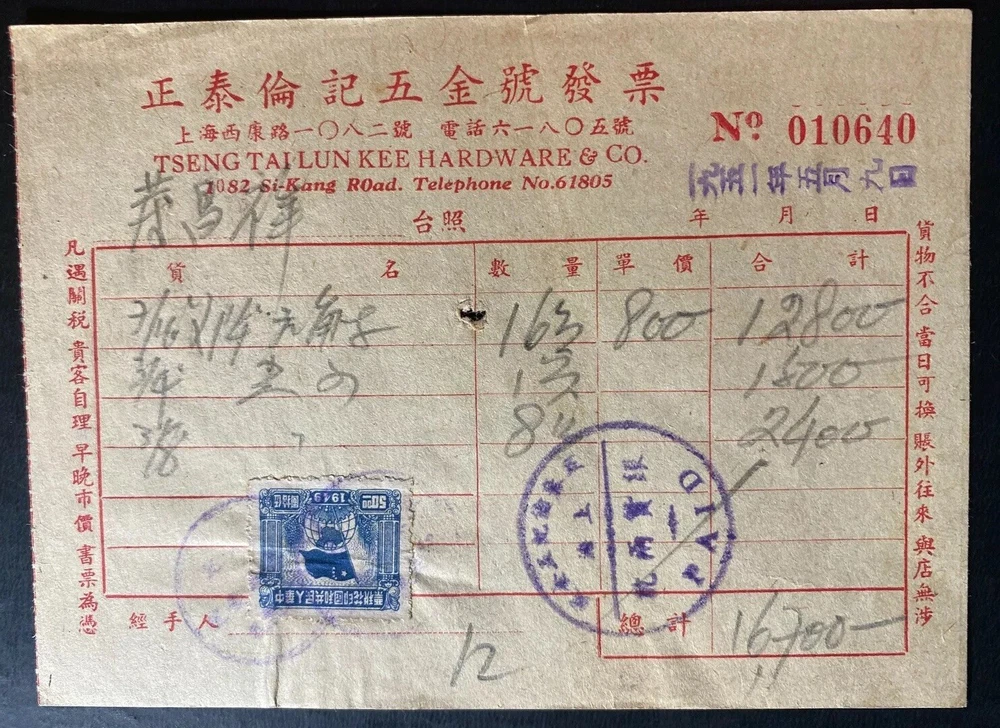 正泰倫記五金號發票
上海西康路一〇八二號 電話六一八〇五號
TSENG TAI LUN KEE HARDWARE & CO.
1082 Si-Kang ROad. Telephone No.61805
Nº 010640
一九五一年五月九日
茂昌祥 台照
年 月 日
凡遇關稅 貴客自理 早晚市價 書票為憑
貨物不合 當日可換 賬外往來 與店無涉
貨 名 數 量 單 價 合 計
800 12800
1500
2400
PAID
銀貨兩訖
上海
1949
中華人民共和國印花稅票
經手人
總計 16700
12